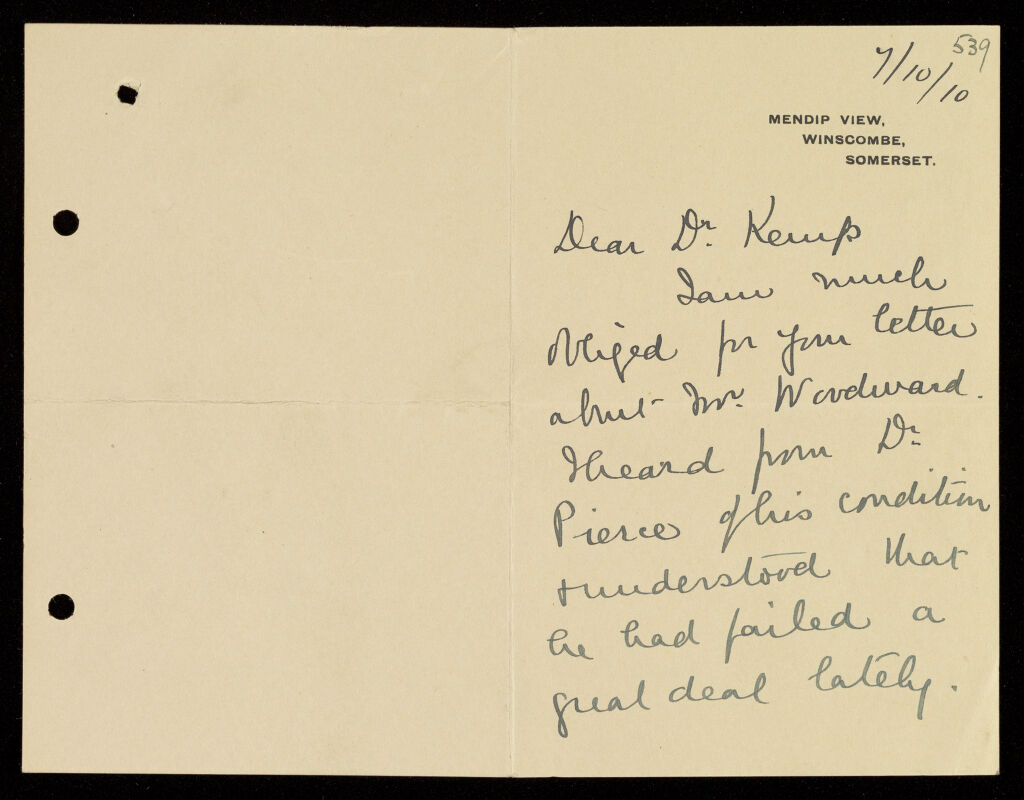 539
7/10/10
MENDIP VIEW,
WINSCOMBE,
SOMERSET.
Dear Dr. Kemp
I am much
obliged for your letter
about Mr. Woodward.
I heard from Dr.
Pierce of his condition
+ understood that
he had failed a
great deal lately.